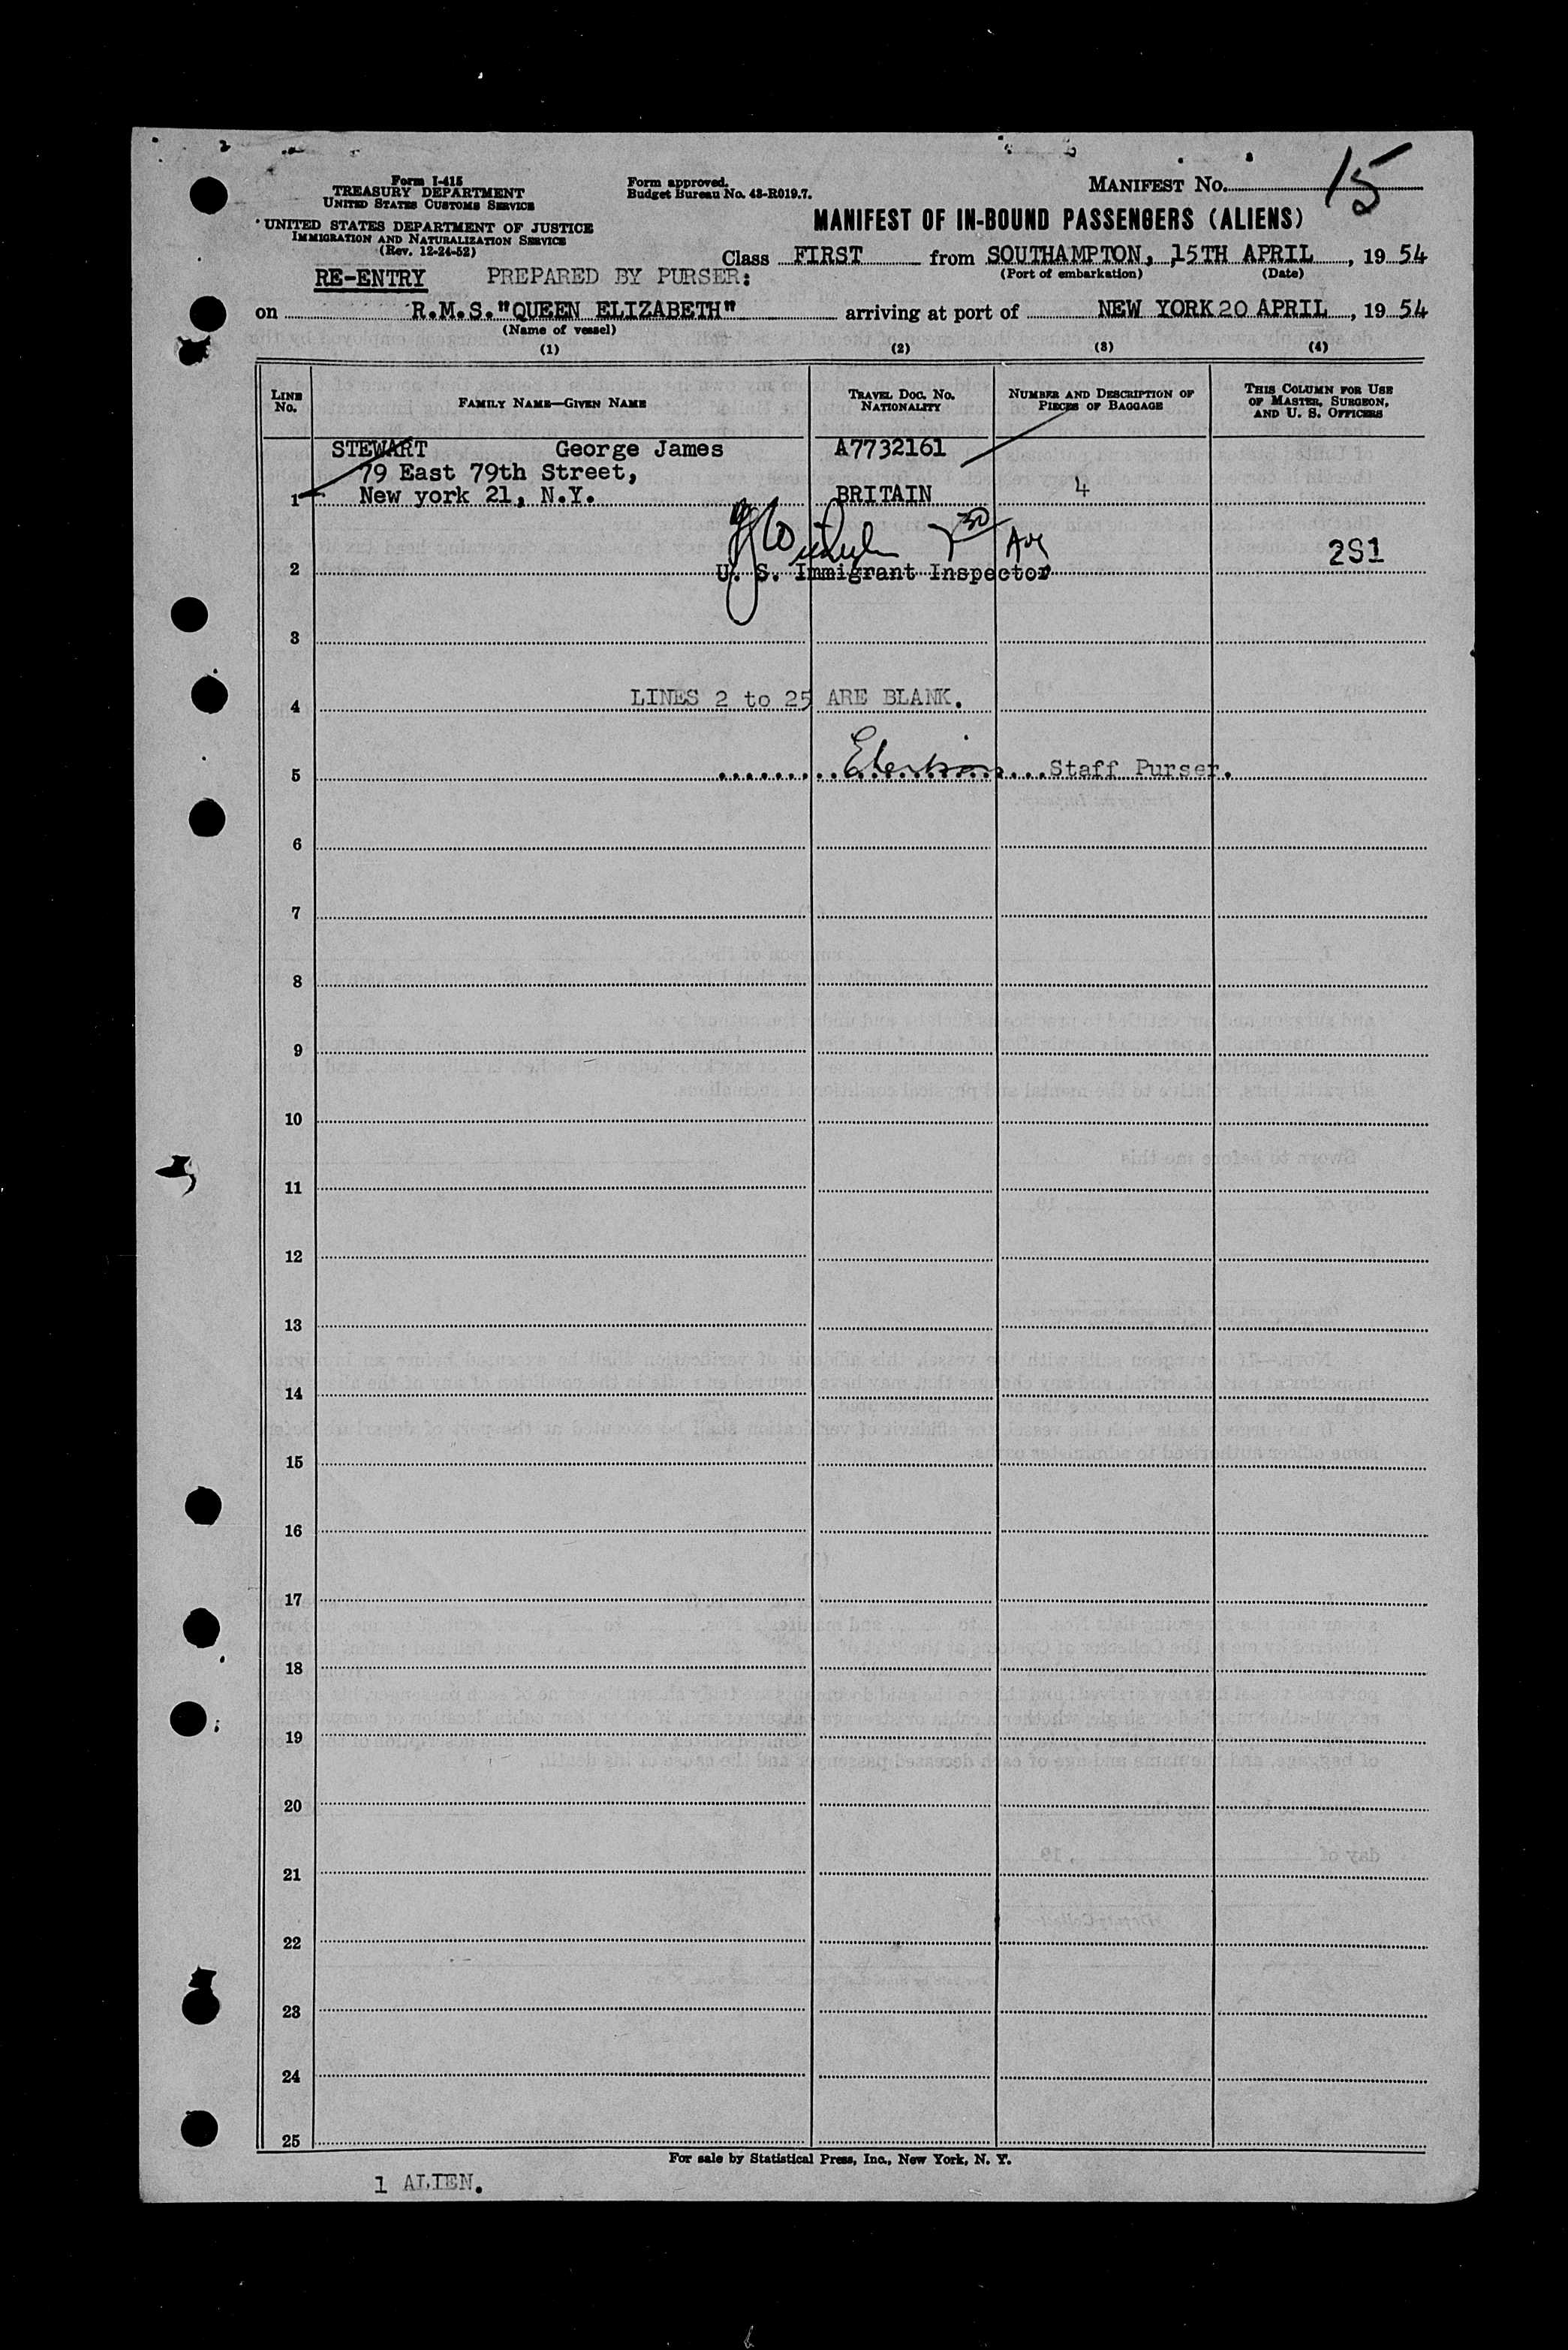 15
Form I-415
TREASURY DEPARTMENT
UNITED STATES CUSTOMS SERVICE
UNITED STATES DEPARTMENT OF JUSTICE
IMMIGRATION AND NATURALIZATION SERVICE
(Rev. 12-24-52)
Form approved.
Budget Bureau No. 43-R019.7.
MANIFEST No.
MANIFEST OF IN-BOUND PASSENGERS (ALIENS)
Class FIRST from SOUTHAMPTON, 15TH APRIL, 19 54
(Port of embarkation) (Date)
RE-ENTRY PREPARED BY PURSER:
on R.M.S."QUEEN ELIZABETH" arriving at port of NEW YORK 20 APRIL, 19 54
(Name of vessel)
(1) (2) (3) (4)
LINE No. FAMILY NAME—GIVEN NAME TRAVEL DOC. No. NATIONALITY NUMBER AND DESCRIPTION OF PIECES OF BAGGAGE THIS COLUMN FOR USE OF MASTER, SURGEON, AND U. S. OFFICERS
STEWART George James A7732161
79 East 79th Street,
1 New york 21, N.Y. BRITAIN 4
2S1
2 U. S. Immigrant Inspector
3
4 LINES 2 to 25 ARE BLANK.
5 Staff Purser.
6
7
8
9
10
11
12
13
14
15
16
17
18
19
20
21
22
23
24
25
For sale by Statistical Press, Inc., New York, N. Y.
1 ALIEN.